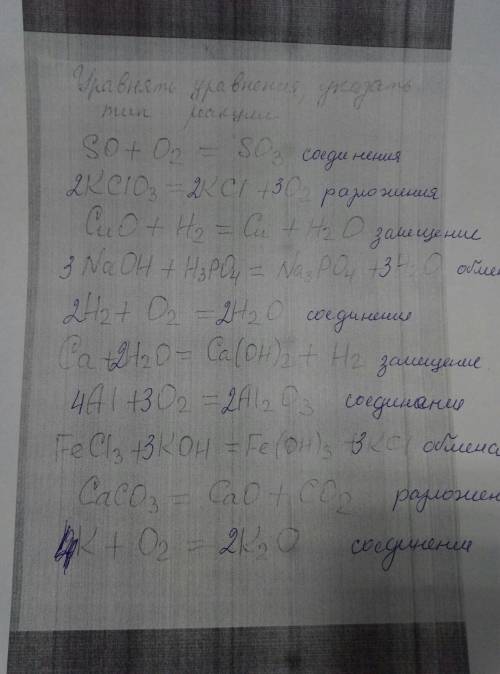 Уравнять уравнения, указать
тип реакции.
SO + O2 = SO3 соединения
2KClO3 = 2KCl + 3O2 разложения
CuO + H2 = Cu + H2O замещение
3NaOH + H3PO4 = Na3PO4 + 3H2O обмен
2H2 + O2 = 2H2O соединение
Ca + 2H2O = Ca(OH)2 + H2 замещение
4Al + 3O2 = 2Al2O3 соединение
FeCl3 + 3KOH = Fe(OH)3 + 3KCl обмена
CaCO3 = CaO + CO2 разложен
4K + O2 = 2K2O соединение